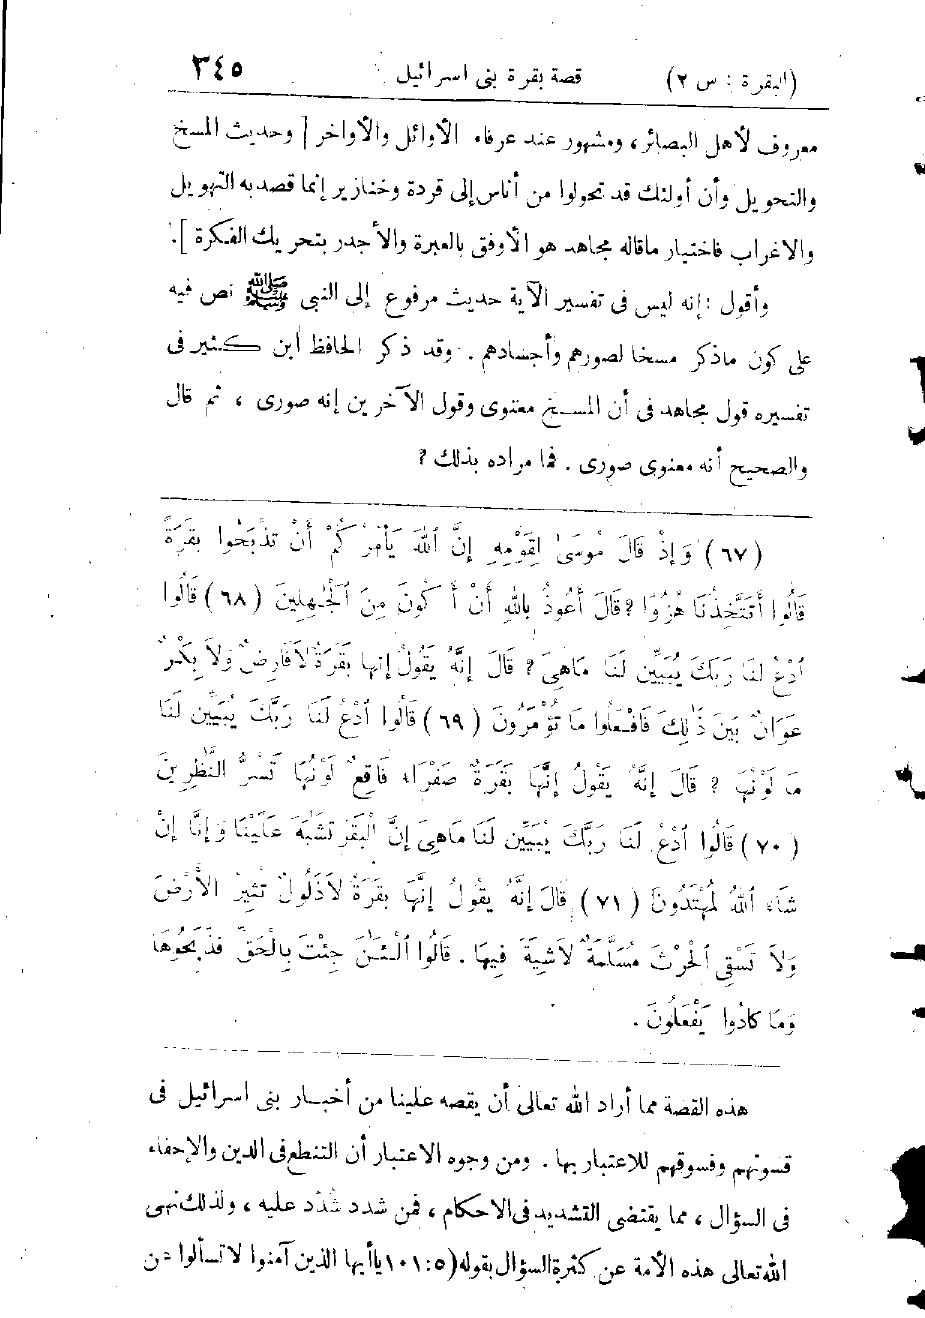 (البقرة : س ٢) قصة بقرة بنى اسرائيل ٣٤٥
معروف لأهل البصائر، ومشهور عند عرفاء الأوائل والأواخر [ وحديث المسخ
والتحويل وأن أولئك قد تحولوا من أناس إلى قردة وخنازير إنما قصد به التهويل
والاغراب فاختيار ماقاله مجاهد هو الأوفق بالعبرة والأجدر بتحريك الفكرة ].
وأقول : إنه ليس فى تفسير الآية حديث مرفوع إلى النبى ﷺ نص فيه
على كون ماذكر مسخا لصورهم وأجسادهم . وقد ذكر الحافظ أبن كثير فى
تفسيره قول مجاهد فى أن المسخ معنوى وقول الآخرين إنه صورى ، ثم قال
والصحيح أنه معنوى صورى . فما مراده بذلك ؟
(٦٧) وَإِذْ قَالَ مُوسَىٰ لِقَوْمِهِ إِنَّ ٱللهَ يَأْمُرُكُمْ أَنْ تَذْبَحُوا بَقَرَةً
قَالُوا أَتَتَّخِذُنَا هُزُوًا ؟ قَالَ أَعُوذُ بِاللهِ أَنْ أَكُونَ مِنَ ٱلْجَٰهِلِينَ (٦٨) قَالُوا
ٱدْعُ لَنَا رَبَّكَ يُبَيِّن لَنَا مَاهِىَ ؟ قَالَ إِنَّهُ يَقُولُ إنها بَقَرَةٌ لاَفَارِضٌ وَلاَ بِكْرٌ
عَوَانٌ بَيْنَ ذَٰلِكَ فَافْعَلُوا مَا تُؤْمَرُونَ (٦٩) قَالُوا ٱدْعُ لَنَا رَبَّكَ يُبَيِّن لَنَا
مَا لَوْنُهَا ؟ قَالَ إِنَّهُ يَقُولُ إِنَّهَا بَقَرَةٌ صَفْرَاء فَاقِعٌ لَوْنُهَا تَسُرُّ النَّٰظِرِينَ
(٧٠) قَالُوا ٱدْعُ لَنَا رَبَّكَ يُبَيِّن لَنَا مَاهِىَ إِنَّ الْبَقَرَ تَشَٰبَهَ عَلَيْنَا وَإِنَّا إِنْ
شَاء ٱللهُ لَمُهْتَدُونَ (٧١) قَالَ إِنَّهُ يَقُولُ إِنَّهَا بَقَرَةٌ لاَذَلُولٌ تُثِيرُ الأَرْضَ
وَلاَ تَسْقِى ٱلْحَرْثَ مُسَلَّمَةٌ لاَشِيَةَ فِيهَا . قَالُوا ٱلْـَٰٔنَ جِئْتَ بِالْحَقِّ فَذَبَحُوهَا
وَمَا كَادُوا يَفْعَلُونَ .
هذه القصة مما أراد الله تعالى أن يقصه علينا من أخبار بنى اسرائيل فى
قسوتهم وفسوقهم للاعتبار بها . ومن وجوه الاعتبار أن التنطع فى الدين والإحفاء
فى السؤال ، مما يقتضى التشديد فى الاحكام ، فمن شدد شُدّد عليه ، ولذلك نهى
الله تعالى هذه الأمة عن كثرة السؤال بقوله (٥ : ١٠١ ياأيها الذين آمنوا لا تسألوا عن